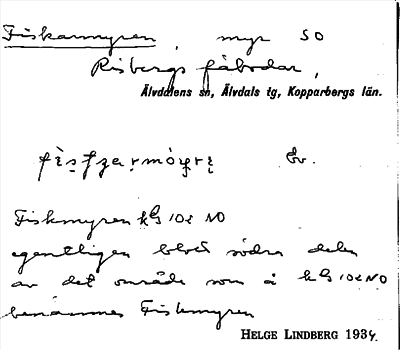 Fiskarmyren, myr SO
Risbergs fäbodar,
Älvdalens sn, Älvdals tg, Kopparbergs län.
Ev.
Fiskmyren kG 102 NO
egentligen blott södra delen
av det område som å kG 102 NO
benämnes Fiskmyren
HELGE LINDBERG 1934.